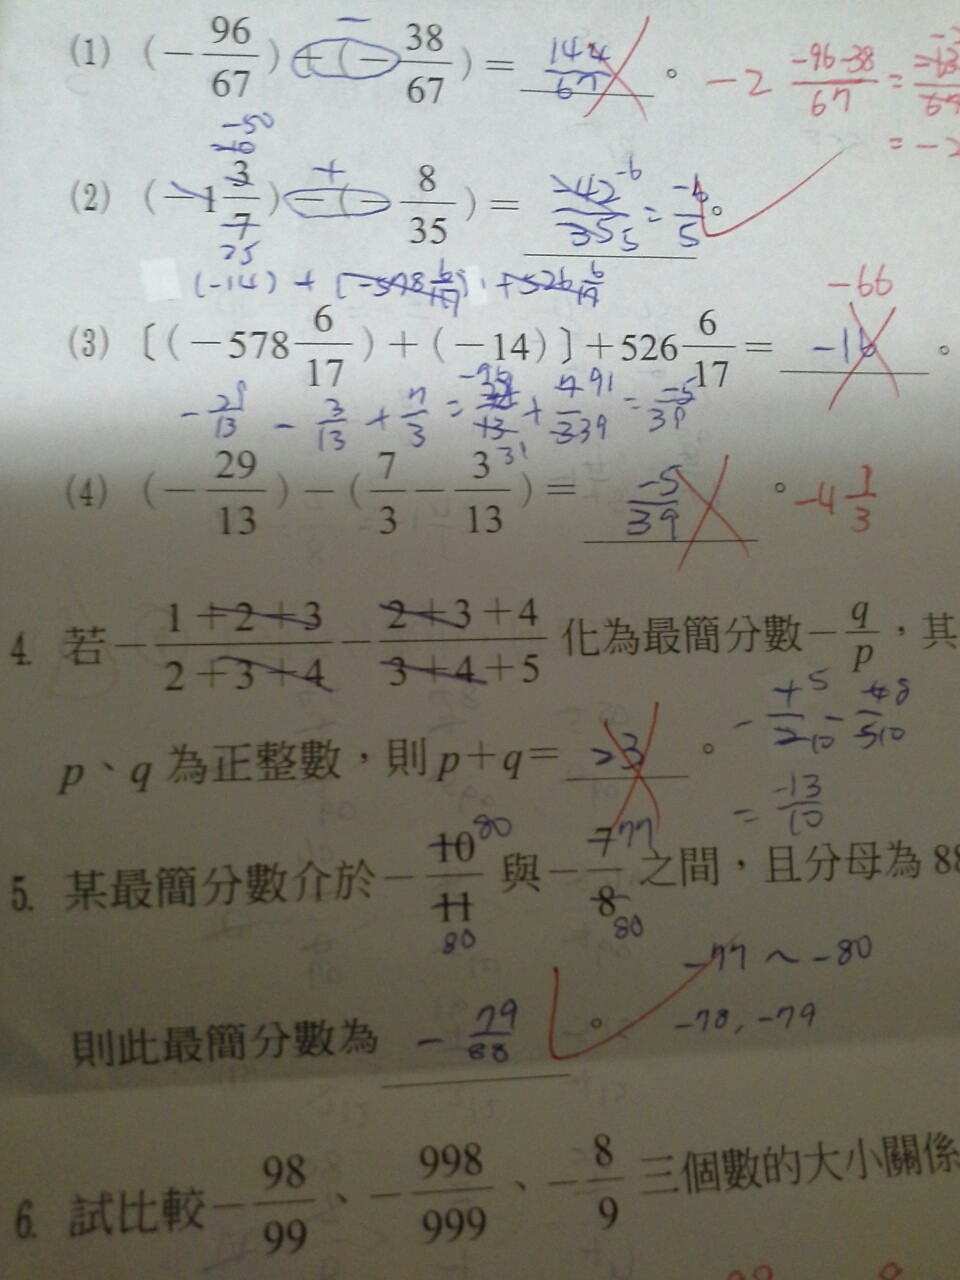 (1) (-96/67)+(-38/67)= 144/67 。 -2 -96-38/67 =
= -2
-50
(2) (-1 3/7)-(-8/35)= -42/35 = -6/5 。
25
(-14)+[-578 6/17]+526 6/17
-66
(3) [(-578 6/17)+(-14)]+526 6/17= -16 。
-29/13 - 3/13 + 7/3 = + 91/39 = -5/39
(4) (-29/13)-(7/3-3/13)= -5/39 。 -4 1/3
4. 若-1+2+3/2+3+4-2+3+4/3+4+5化為最簡分數-q/p,其
-5/10-8/10
p、q為正整數,則p+q= 23 。
= -13/10
80 77
5. 某最簡分數介於-10/11與-7/8之間,且分母為88
80 80
-77~-80
則此最簡分數為 -79/88 。 -78,-79
6. 試比較-98/99、-998/999、-8/9三個數的大小關係